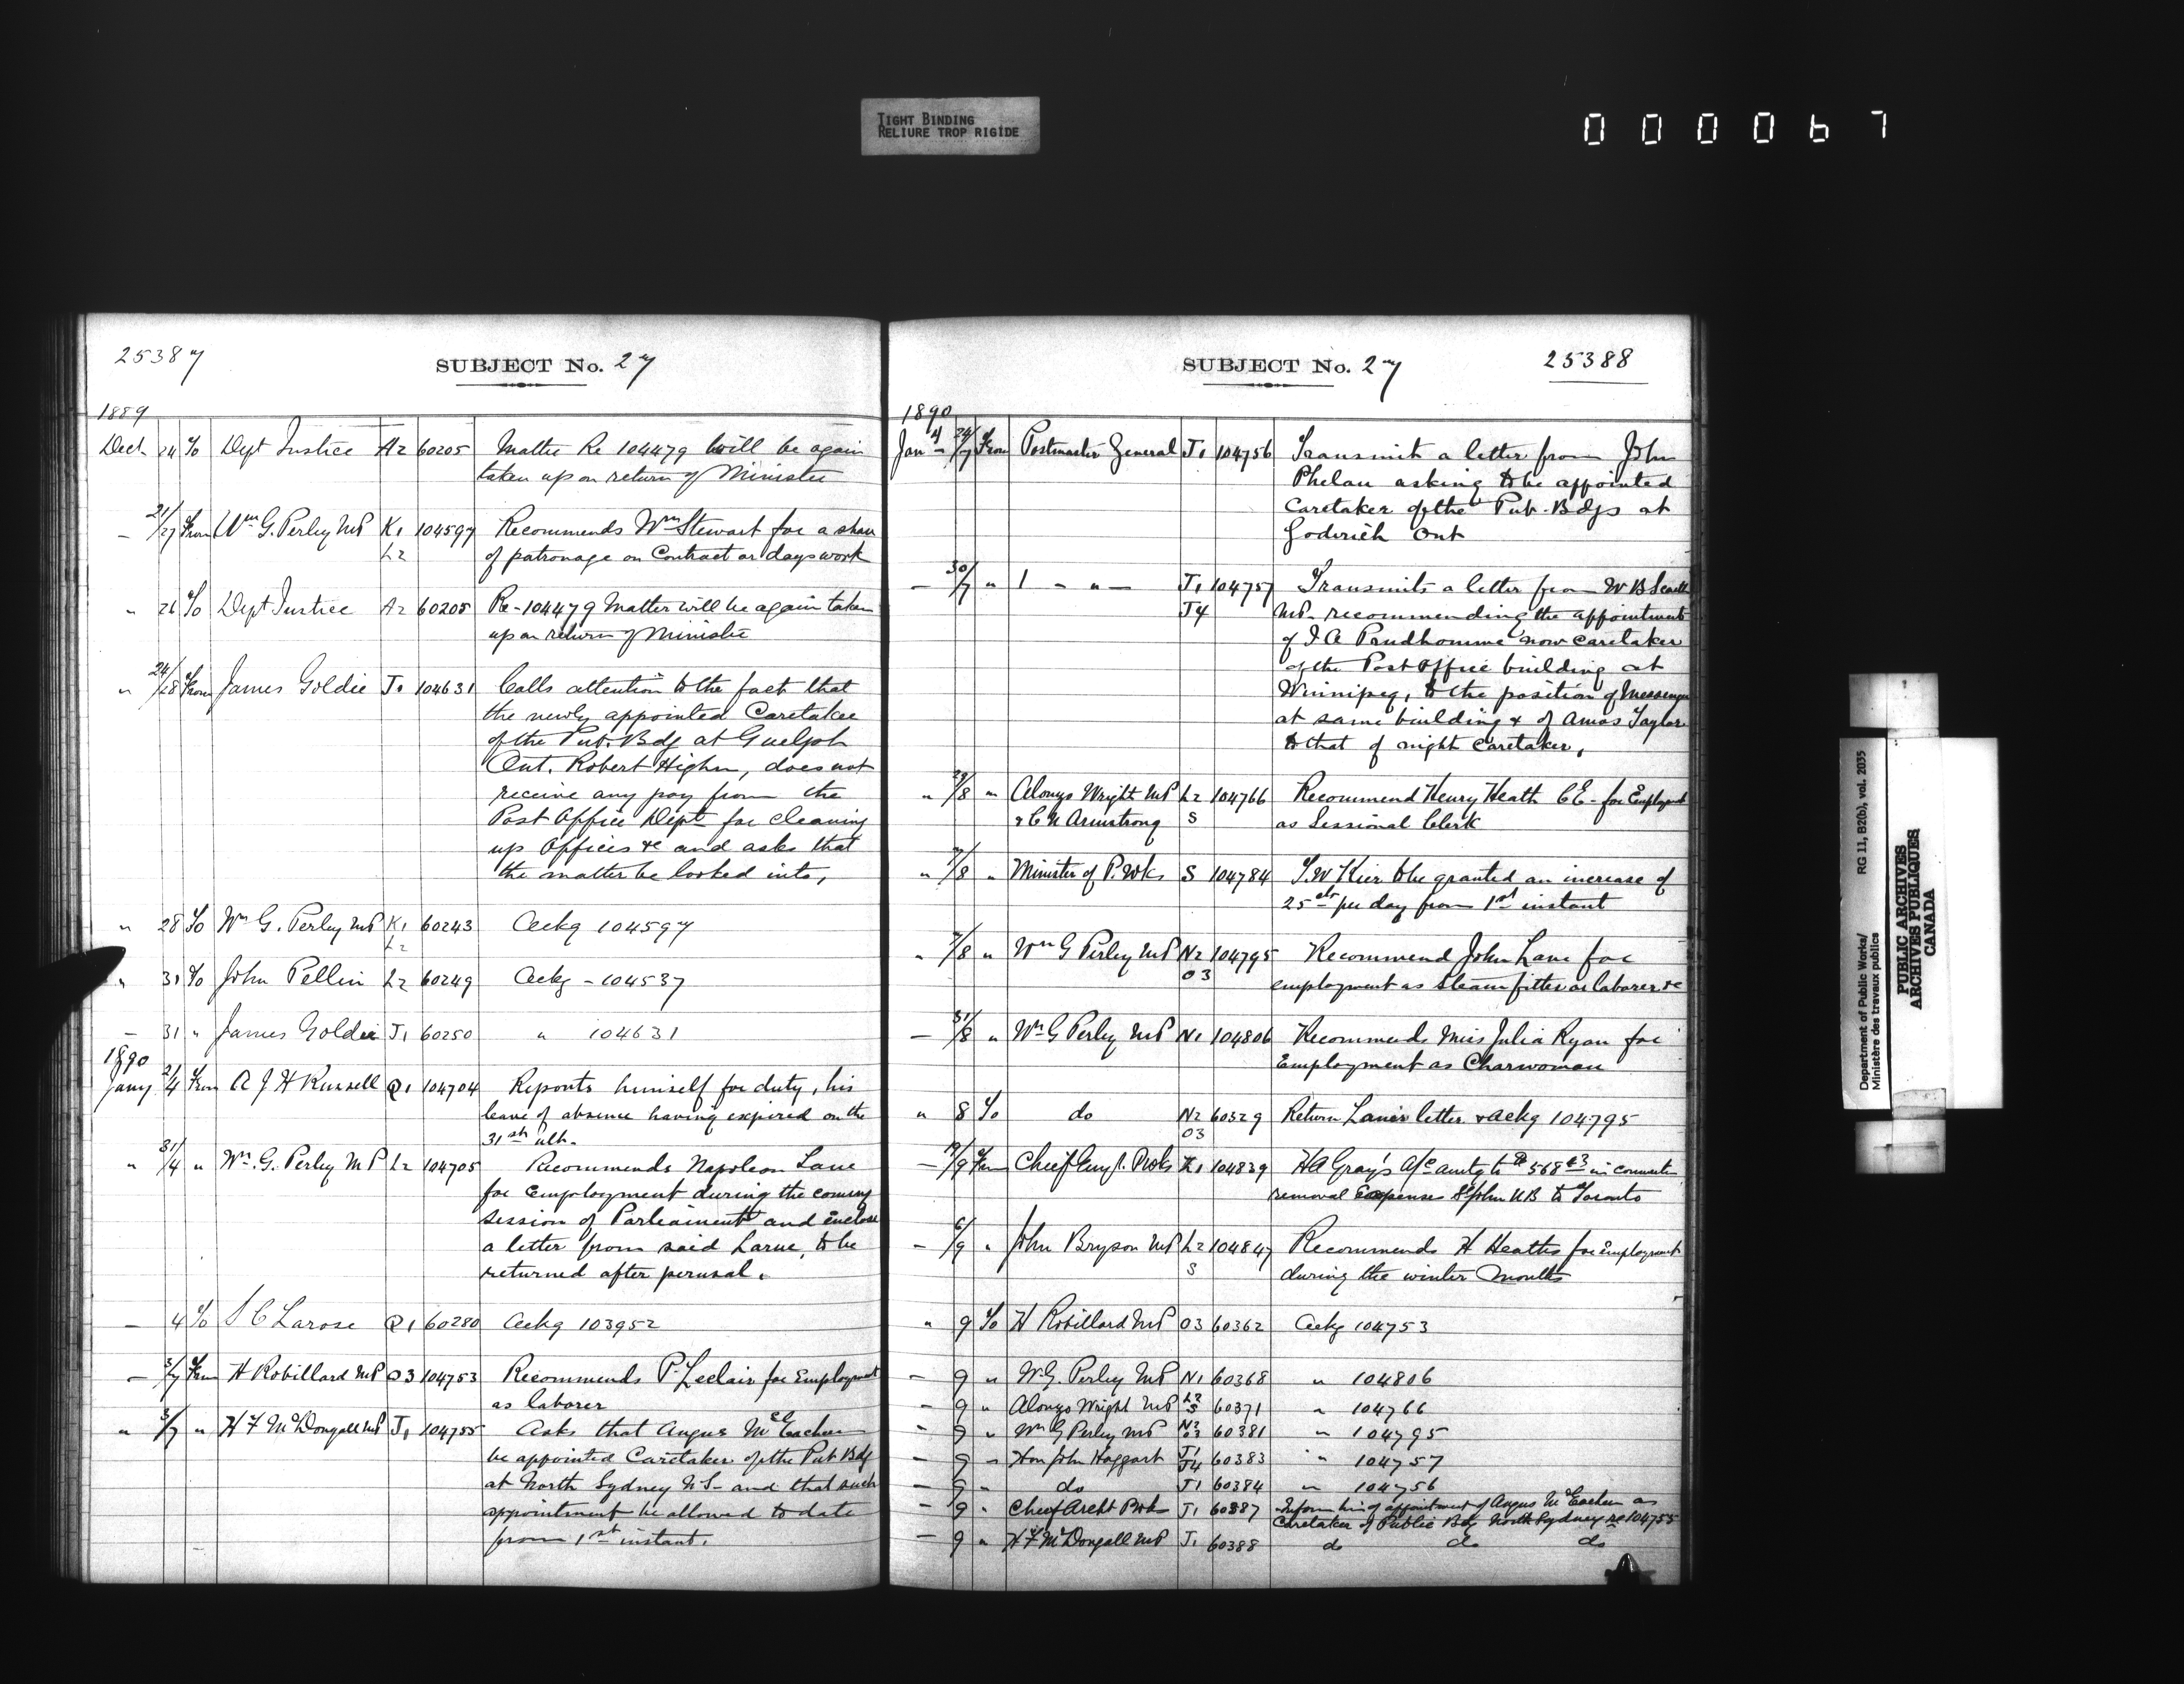 TIGHT BINDING
RELIURE TROP RIGIDE
000067
25387
SUBJECT No. 27
1889
Dect. 24 To Dept Justice A2 60205 Matter Re 104479 will be again
taken up on return of Minister
" 21/27 From Wm G. Perley MP K1 104597 Recommends Wm Stewart for a share
L2 of patronage on Contract or days work
" 26 To Dept Justice A2 60205 Re-104479 Matter will be again taken
up on return of Ministe
" 24/28 From James Goldie J1 104631 Calls attention to the fact that
the newly appointed Caretaker
of the Pub. Bdg at Guelph
Ont. Robert Highm, does not
receive any pay from the
Post Office Dept for cleaning
up Offices &c and asks that
the matter be looked into,
" 28 To Wm G. Perley MP K1 60243 Ackg 104597
L2
" 31 To John Pellin L2 60249 Ackg - 104537
— 31 " James Goldie J1 60250 " 104631
1890
Jany 2/4 From A J H Russell Q1 104704 Reports himself for duty, his
leave of absence having expired on the
31st ult.
" 31/4 " Wm. G. Perley MP L2 104705 Recommends Napoleon Larue
for Employment during the coming
session of Parliament and enclose
a letter from said Larue, to be
returned after perusal.
— 4 To S C Larose Q1 60280 Ackg 103952
— 3/7 From H Robillard MP O3 104753 Recommends P. Leclair for Employment
as laborer
" 3/7 " H F McDougall MP J1 104755 Asks that Angus McEachen
be appointed Caretaker of the Pub Bdg
at North Sydney N.S- and that such
appointment be allowed to date
from 1st instant.
SUBJECT No. 27
25388
1890
Jany 24/7 From Postmaster General J1 104756 Transmits a letter from John
Phelan asking to be appointed
Caretaker of the Pub-Bdgs at
Goderich Ont
— 30/7 " 1 - " — J1 104757 Transmits a letter from W B Scarth
J4 MP- recommending the appointment
of J A Prudhomme now caretaker
of the Post Office building at
Winnipeg, to the position of Messenger
at same building & of Amos Taylor
to that of night Caretaker,
" 29/8 " Alonzo Wright MP L2 104766 Recommend Henry Heath CE- for Employment
& C N Armstrong S as Sessional Clerk
" 7/8 " Minister of P. Wks S 104784 T.W Kier to be granted an increase of
25 cts per day from 1st instant
" 7/8 " Wm G Perley MP N2 104795 Recommend John Lane for
O3 employment as Steamfitter or laborer &c
— 31/8 " Wm G Perley MP N1 104806 Recommends Miss Julia Ryan for
Employment as Charwoman
" 8 To do N2 60329 Return Lane's letter & ackg 104795
O3
— /9 From Chief Eng. P. Wks K1 104839 H A Gray's a/c amtg to $568 63 in connection
removal Expenses St John N B to Toronto
— 6/9 " John Bryson MP L2 104847 Recommends H Heaths for employment
S during the winter months
" 9 To H Robillard MP O3 60362 Ackg 104753
— 9 " W.G. Perley MP N1 60368 " 104806
— 9 " Alonzo Wright MP L2 S 60371 " 104766
— 9 " Wm G Perley MP N2 O3 60381 " 104795
— 9 " Hon John Haggart J1 J4 60383 " 104757
— 9 " do J1 60384 " 104756
— 9 " Chief Archt P Wks J1 60387 Inform him of appointment of Angus McEachen as
Caretaker of Public Bdg North Sydney re 104755
— 9 " H F McDougall MP J1 60388 do do do
Department of Public Works/ RG 11, B2(b), vol. 2035
Ministère des travaux publics
PUBLIC ARCHIVES
ARCHIVES PUBLIQUES
CANADA